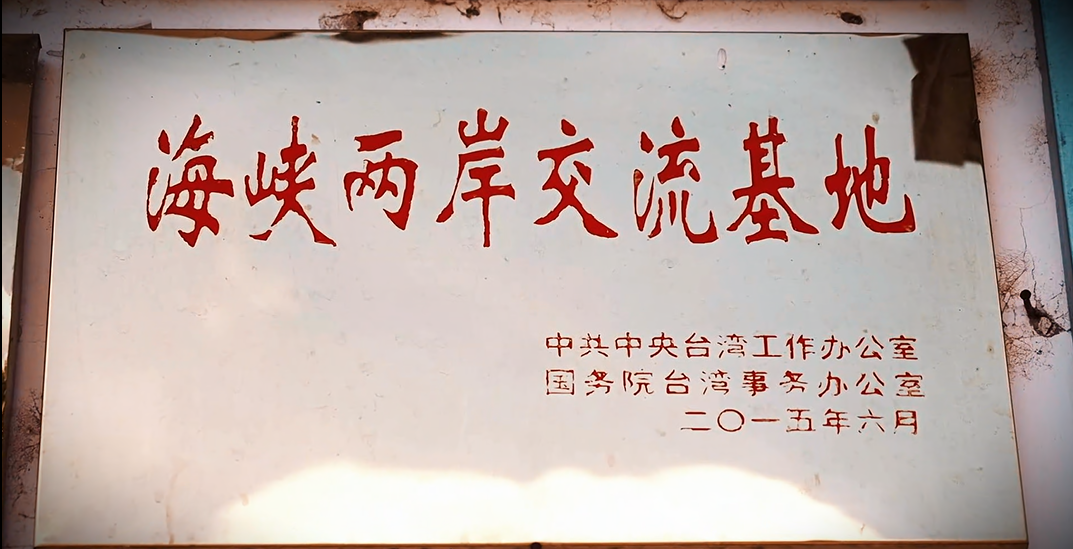 海峡两岸交流基地
中共中央台湾工作办公室
国务院台湾事务办公室
二〇一五年六月